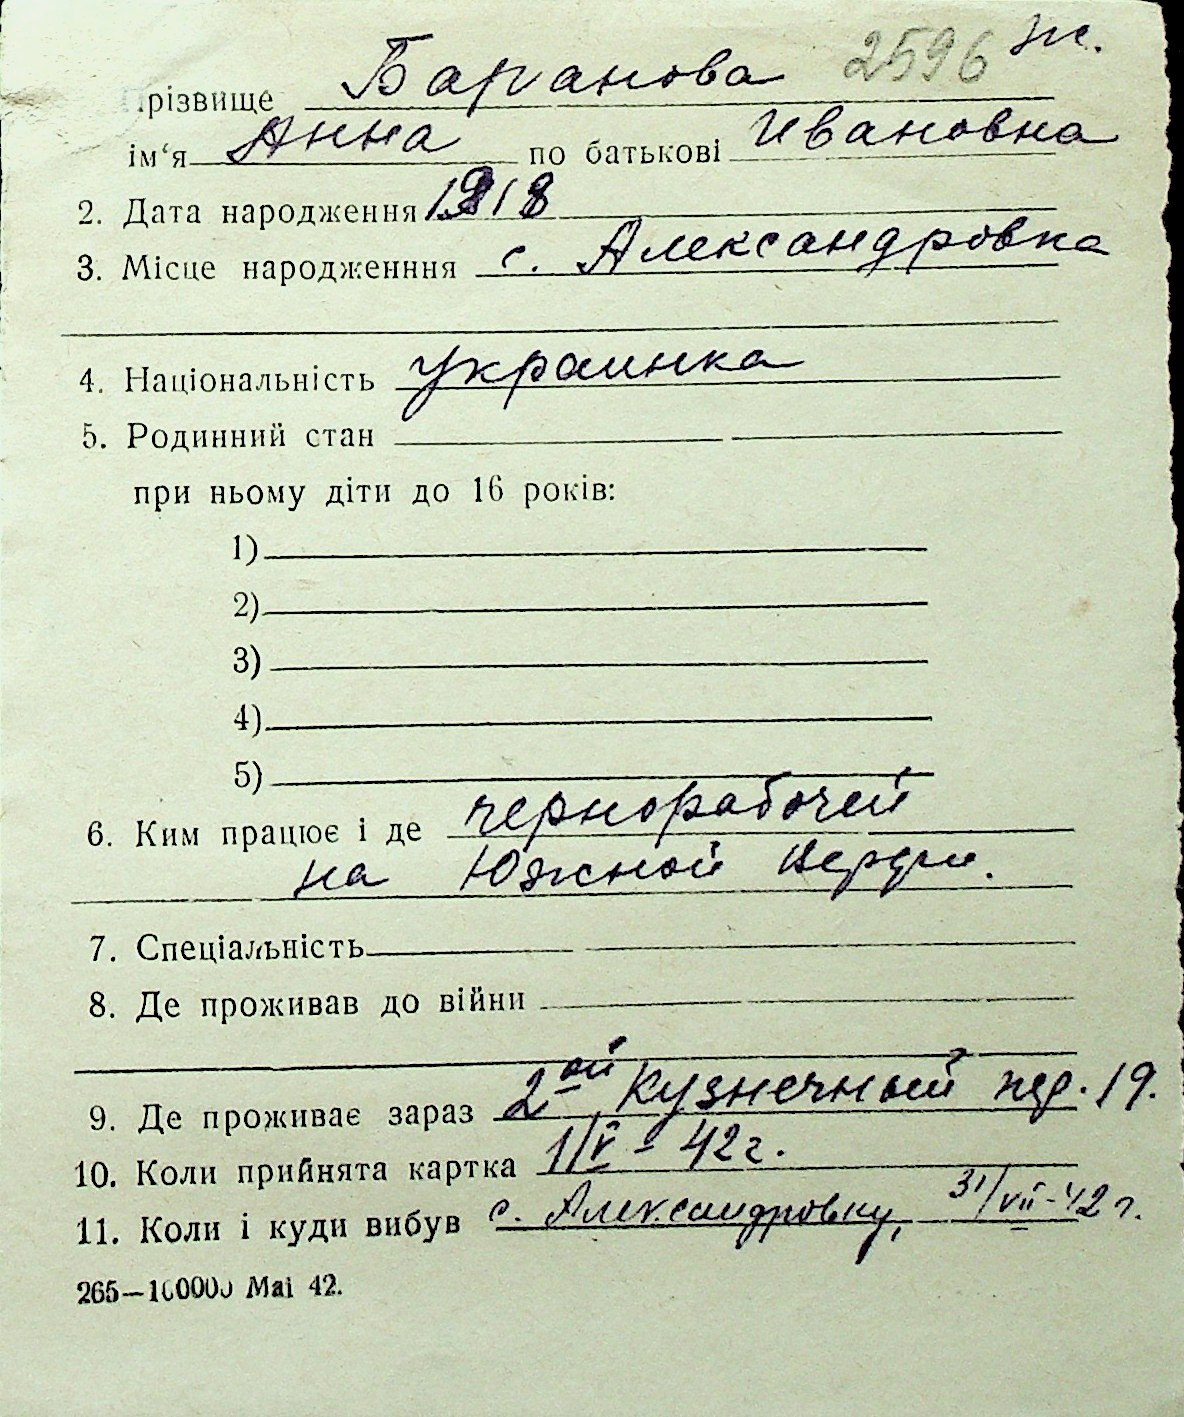 2596 ж.
Прізвище Баранова
ім‘я Анна по батькові Ивановна
2. Дата народження 1918
3. Місце народженння с. Александровка
4. Національність украинка
5. Родинний стан
при ньому діти до 16 років:
1)
2)
3)
4)
5)
6. Ким працює і де чернорабочей
на Южной
7. Спеціальність
8. Де проживав до війни
9. Де проживає зараз 2ой Кузнечный пер. 19.
10. Коли прийнята картка 1/V - 42 г.
11. Коли і куди вибув с. Александровку, 31/VII-42 г.
265—100000 Mai 42.